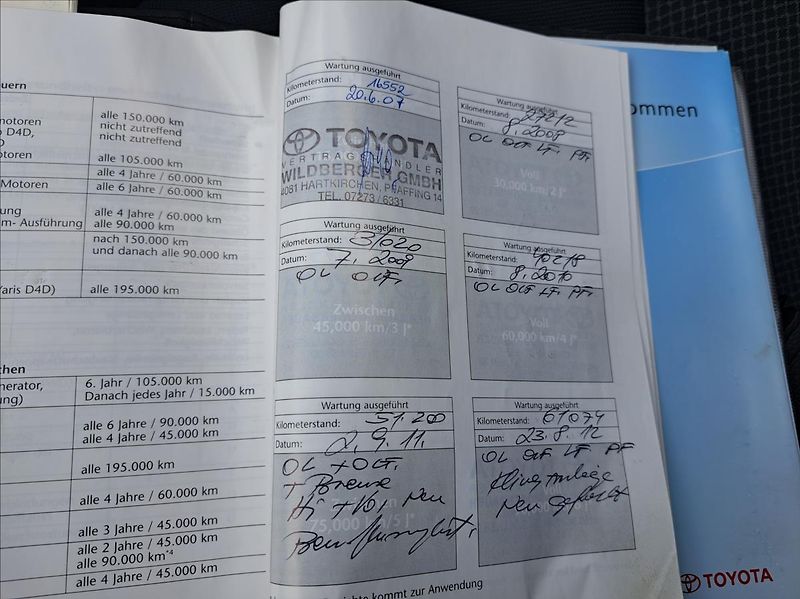 euern
alle 150.000 km
motoren
nicht zutreffend
D4D,
nicht zutreffend
otoren
alle 105.000 km
alle 4 Jahre / 60.000 km
Motoren
alle 6 Jahre / 60.000 km
alle 4 Jahre / 60.000 km
m- Ausführung
alle 90.000 km
nach 150.000 km
und danach alle 90.000 km
Yaris D4D)
alle 195.000 km
chen
nerator,
6. Jahr / 105.000 km
ung)
Danach jedes Jahr / 15.000 km
alle 6 Jahre / 90.000 km
alle 4 Jahre / 45.000 km
alle 195.000 km
alle 4 Jahre / 60.000 km
alle 3 Jahre / 45.000 km
alle 2 Jahre / 45.000 km
alle 90.000 km*4
alle 4 Jahre / 45.000 km
Wartung ausgeführt
Kilometerstand: 16552
Datum: 20.6.07
TOYOTA
VERTRAGSHÄNDLER
WILDBERGER GMBH
4081 HARTKIRCHEN, PFAFFING 14
TEL. 07273/6331
Wartung ausgeführt
Kilometerstand: 27212
Datum: 8.2008
OL OLF LF PF
Voll
30,000 km/2 J*
Wartung ausgeführt
Kilometerstand: 31020
Datum: 7.2009
OL OLF.
Zwischen
45,000 km/3 J*
Wartung ausgeführt
Kilometerstand: 40218
Datum: 8.2010
OL OLF LF PF.
Voll
60,000 km/4 J*
Wartung ausgeführt
Kilometerstand: 51.200
Datum: 2.9.11.
OL + OLF.
+ Bremse
Hi + Vo, neu
75,000 km/5 J*
Bremsflüssigkeit.
Wartung ausgeführt
Kilometerstand: 61074
Datum: 23.8.12
OL OLF LF PF
Klimaanlage
neu gefüllt
kommt zur Anwendung
ommen
TOYOTA